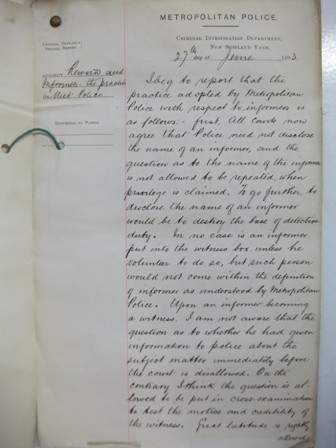 METROPOLITAN POLICE.
CRIMINAL INVESTIGATION DEPARTMENT,
NEW SCOTLAND YARD,
27th day of June 1903
CENTRAL OFFICER'S
SPECIAL REPORT.
SUBJECT Rewards and
Informers: the practice
in Met. Police
REFERENCE TO PAPERS.
I beg to report that the
practice adopted by Metropolitan
Police with respect to informers is
as follows:- first, All Courts now
agree that Police need not disclose
the name of an informer, and the
question as to the name of the informer
is not allowed to be repeated, when
privilege is claimed. To go further, to
disclose the name of an informer
would be to destroy the base of detective
duty. In no case is an informer
put into the witness box, unless he
volunteer to do so, but such person
would not come within the definition
of informer as understood by Metropolitan
Police. Upon an informer becoming
a witness. I am not aware that the
question as to whether he had given
information to police about the
subject matter immediately before
the court is disallowed. On the
contrary I think the question is al-
lowed to be put in cross examination
to test the motive and credibility of
the witness. Great latitude is rightly
allowed